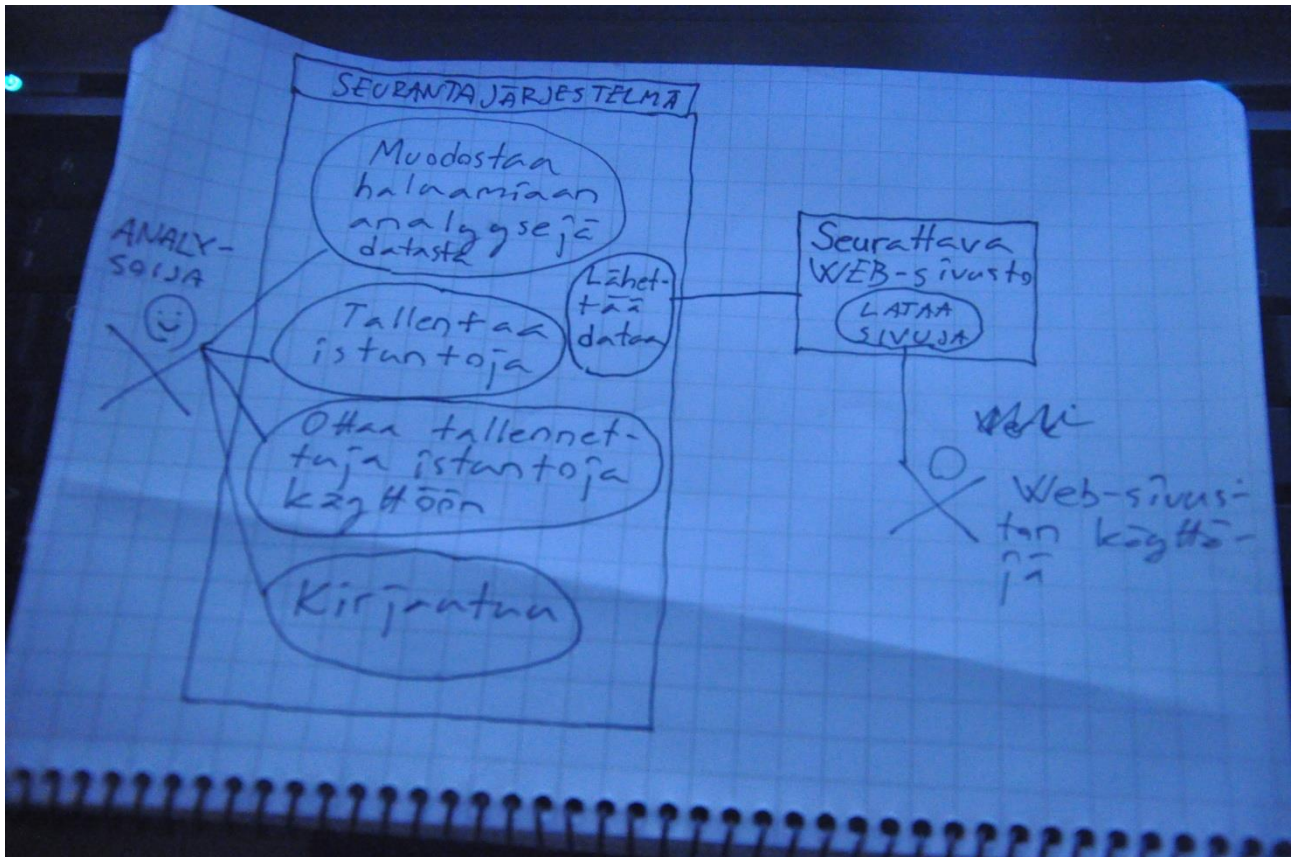 SEURANTAJÄRJESTELMÄ
Muodostaa
haluamiaan
analyysejä
datasta
ANALY-
SOIJA
Lähet-
tää
dataa
Tallentaa
istuntoja
Ottaa tallennet-
tuja istuntoja
käyttöön
Kirjautuu
Seurattava
WEB-sivusto
LATAA
SIVUJA
Web-sivus-
ton käyttä-
jä